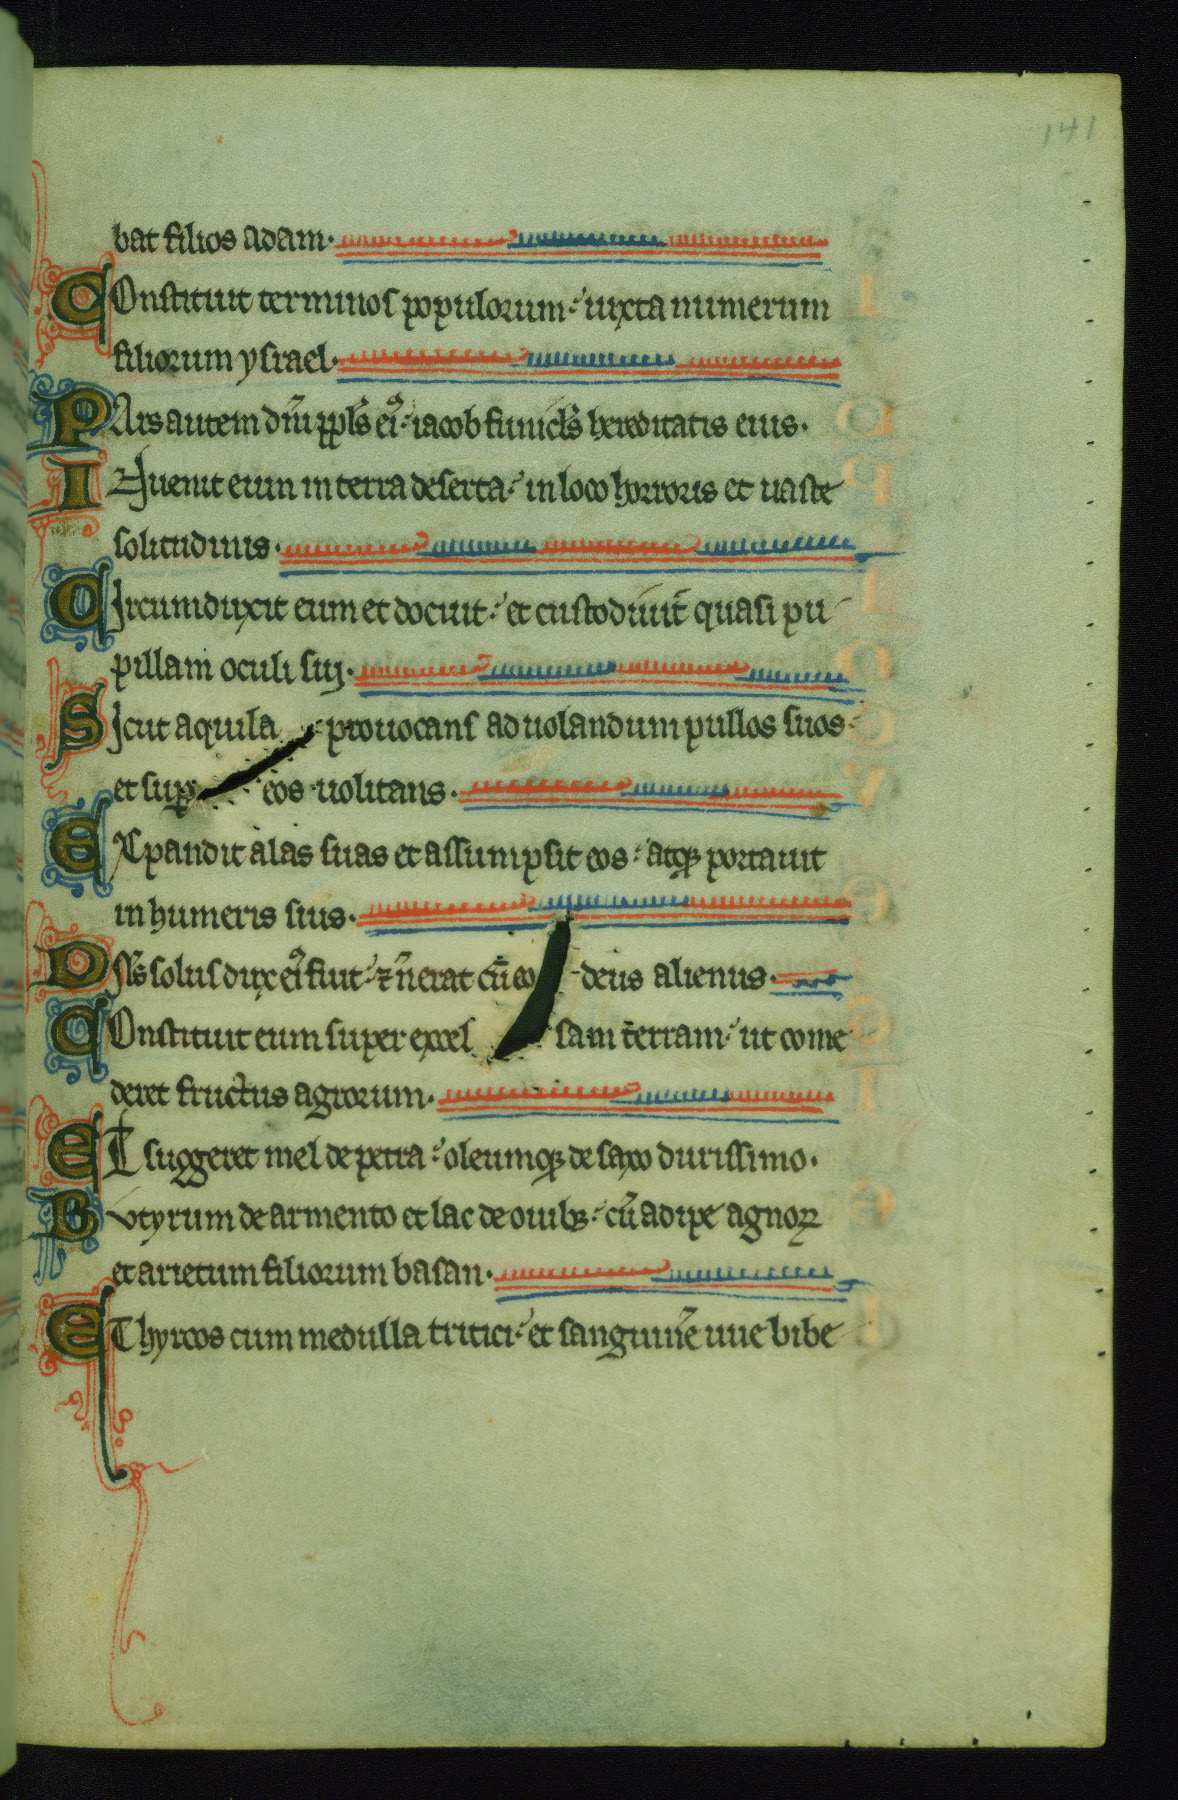 141
bat filios adam.
COnstituit terminos populorum: iuxta numerum
filiorum ysrael.
PArs autem dñi ppl's ei9: iacob funicl's hereditatis eius.
INuenit eum in terra deserta: in loco horroris et uaste
solitudinis.
CIrcumduxit eum et docuit: et custodiuit quasi pu
pillam oculi sui.
SIcut aquila prouocans ad uolandum pullos suos
et sup eos uolitans.
EXpandit alas suas et assumpsit eos: atq; portauit
in humeris suis.
DN̄s solus dux ei9 fuit: ⁊ ñ erat cū eo deus alienus.
COnstituit eum super excel sam terram: ut come
deret fructus agrorum.
ET suggeret mel de petra: oleumq; de saxo durissimo.
BVtyrum de armento et lac de ouib;: cū adipe agnoꝝ
et arietum filiorum basan.
ET hyrcos cum medulla tritici: et sanguinē uue bibe